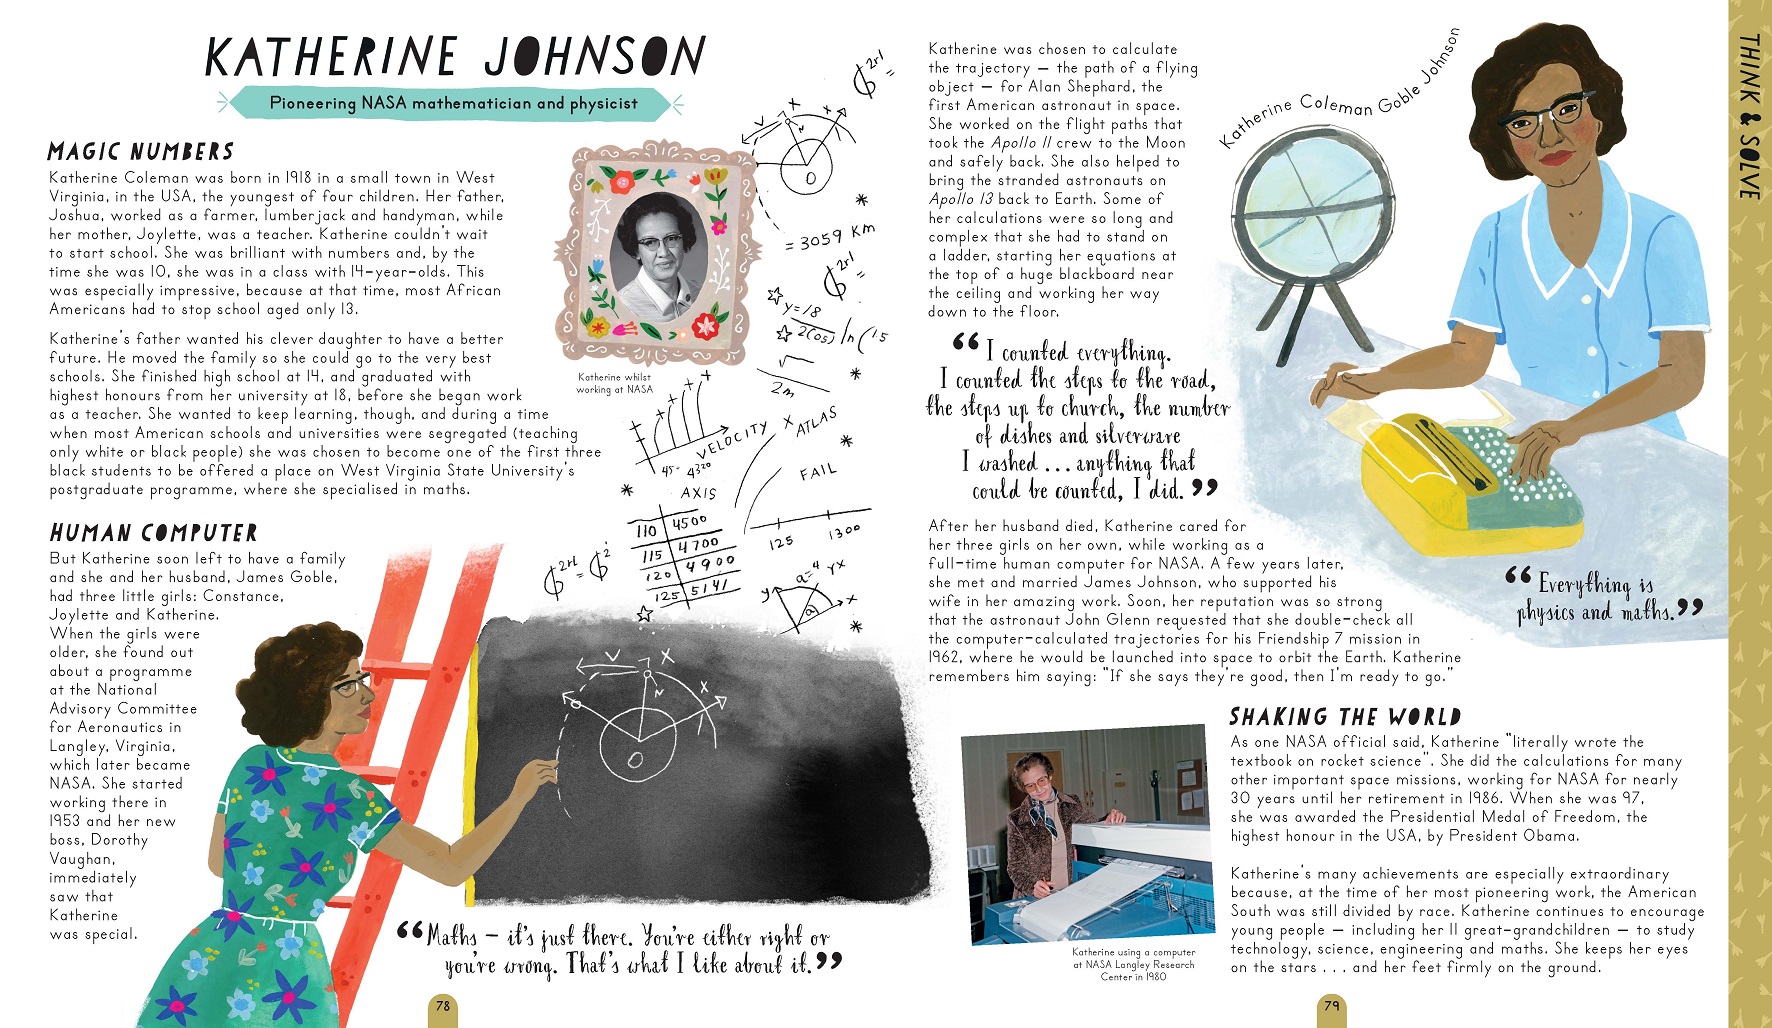 KATHERINE JOHNSON
Pioneering NASA mathematician and physicist
MAGIC NUMBERS
Katherine Coleman was born in 1918 in a small town in West
Virginia, in the USA, the youngest of four children. Her father,
Joshua, worked as a farmer, lumberjack and handyman, while
her mother, Joylette, was a teacher. Katherine couldn't wait
to start school. She was brilliant with numbers and, by the
time she was 10, she was in a class with 14-year-olds. This
was especially impressive, because at that time, most African
Americans had to stop school aged only 13.
Katherine's father wanted his clever daughter to have a better
future. He moved the family so she could go to the very best
schools. She finished high school at 14, and graduated with
highest honours from her university at 18, before she began work
as a teacher. She wanted to keep learning, though, and during a time
when most American schools and universities were segregated (teaching
only white or black people) she was chosen to become one of the first three
black students to be offered a place on West Virginia State University's
postgraduate programme, where she specialised in maths.
Katherine whilst
working at NASA
HUMAN COMPUTER
But Katherine soon left to have a family
and she and her husband, James Goble,
had three little girls: Constance,
Joylette and Katherine.
When the girls were
older, she found out
about a programme
at the National
Advisory Committee
for Aeronautics in
Langley, Virginia,
which later became
NASA. She started
working there in
1953 and her new
boss, Dorothy
Vaughan,
immediately
saw that
Katherine
was special.
V X X
N
O
= 3059 KM
y=18
2(os) ln(15
2m
VELOCITY
45- 4320
X ATLAS
FAIL
AXIS
110 4500
115 4700
120 4900
125 5141
125 1300
a=4 yx
y x
a
V X X
N
O
"Maths – it's just there. You're either right or
you're wrong. That's what I like about it."
78
Katherine was chosen to calculate
the trajectory – the path of a flying
object – for Alan Shephard, the
first American astronaut in space.
She worked on the flight paths that
took the Apollo 11 crew to the Moon
and safely back. She also helped to
bring the stranded astronauts on
Apollo 13 back to Earth. Some of
her calculations were so long and
complex that she had to stand on
a ladder, starting her equations at
the top of a huge blackboard near
the ceiling and working her way
down to the floor.
"I counted everything.
I counted the steps to the road,
the steps up to church, the number
of dishes and silverware
I washed ... anything that
could be counted, I did."
Katherine Coleman Goble Johnson
After her husband died, Katherine cared for
her three girls on her own, while working as a
full-time human computer for NASA. A few years later,
she met and married James Johnson, who supported his
wife in her amazing work. Soon, her reputation was so strong
that the astronaut John Glenn requested that she double-check all
the computer-calculated trajectories for his Friendship 7 mission in
1962, where he would be launched into space to orbit the Earth. Katherine
remembers him saying: "If she says they're good, then I'm ready to go."
"Everything is
physics and maths."
Katherine using a computer
at NASA Langley Research
Center in 1980
SHAKING THE WORLD
As one NASA official said, Katherine "literally wrote the
textbook on rocket science". She did the calculations for many
other important space missions, working for NASA for nearly
30 years until her retirement in 1986. When she was 97,
she was awarded the Presidential Medal of Freedom, the
highest honour in the USA, by President Obama.
Katherine's many achievements are especially extraordinary
because, at the time of her most pioneering work, the American
South was still divided by race. Katherine continues to encourage
young people – including her 11 great-grandchildren – to study
technology, science, engineering and maths. She keeps her eyes
on the stars . . . and her feet firmly on the ground.
79
THINK & SOLVE